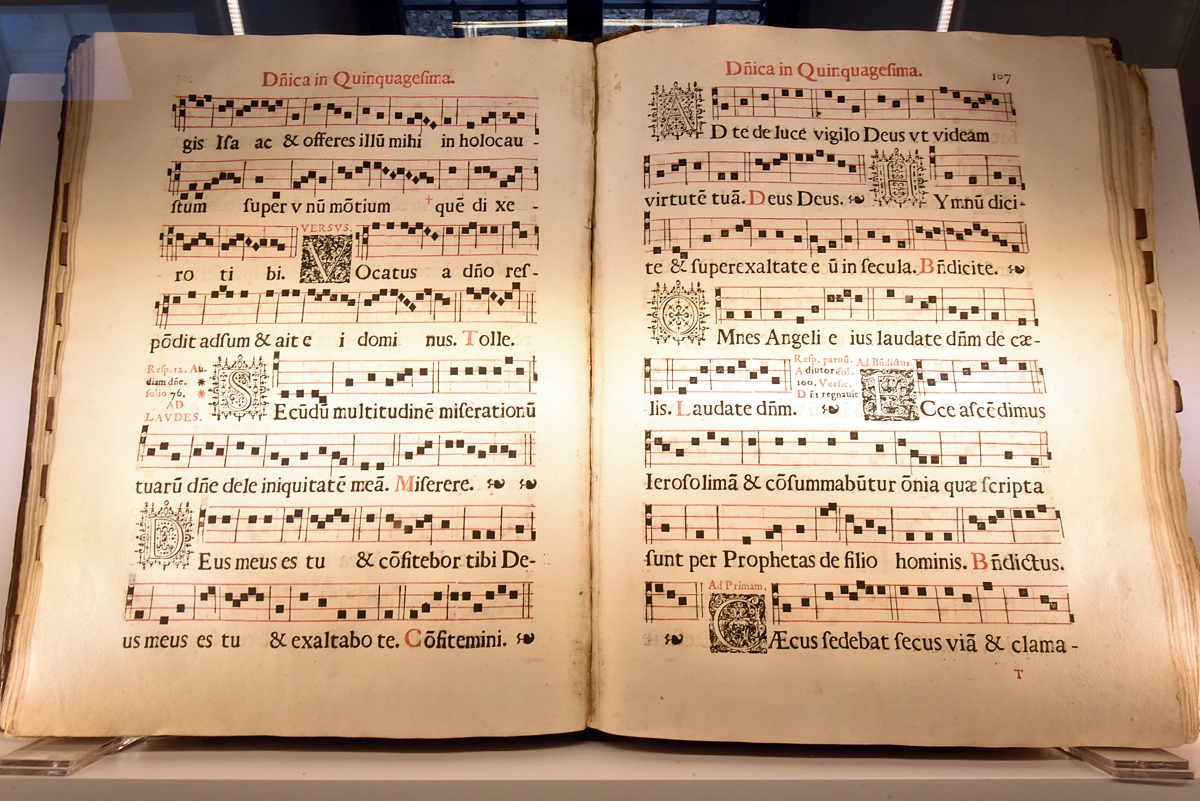 Dñica in Quinquagesima.
gis Isa ac & offeres illũ mihi in holocau -
stum super v nũ mõtium † quẽ di xe -
VERSVS.
ro ti bi. VOcatus a dño res-
põdit adsum & ait e i domi nus. Tolle.
Resp. 12. Au-
diam dñe. *
folio 76. *
AD
LAVDES.
SEcũdũ multitudinẽ miserationũ
tuarũ dñe dele iniquitatẽ meã. Miserere.
DEus meus es tu & cõfitebor tibi De-
us meus es tu & exaltabo te. Cõfitemini.
Dñica in Quinquagesima.
107
AD te de luce vigilo Deus vt videam
virtutẽ tuã. Deus Deus. HYmnũ dici-
te & superexaltate e ũ in secula. Bñdicite.
OMnes Angeli e ius laudate dñm de cæ-
Resp. paruũ.
Adiutor. fol.
100. Versic.
Dñs regnauit
Ad Bñdictus.
lis. Laudate dñm. ECce ascẽdimus
Ierosolimã & cõsummabũtur õnia quæ scripta
sunt per Prophetas de filio hominis. Bñdictus.
Ad Primam.
CÆcus sedebat secus viã & clama -
T